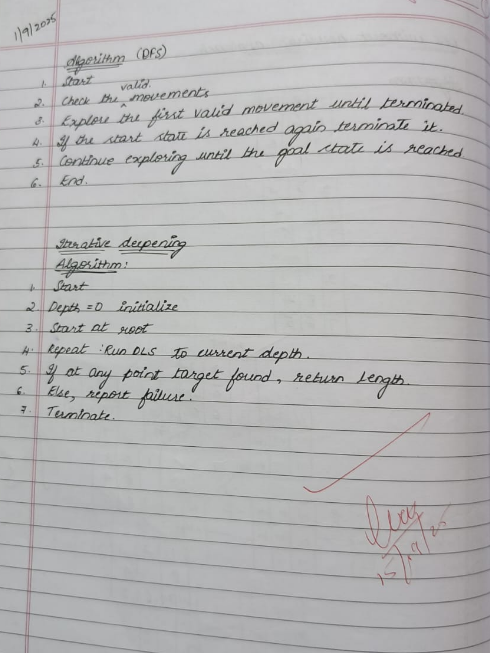 1/9/2025
Algorithm (DFS)
1. Start
2. Check the valid movements
3. Explore the first valid movement until terminated.
4. If the start state is reached again terminate it.
5. Continue exploring until the goal state is reached
6. End.
Iterative deepening
Algorithm:
1. Start
2. Depth = 0 initialize
3. Start at root
4. Repeat : Run DLS to current depth.
5. If at any point target found, return Length.
6. Else, report failure.
7. Terminate.